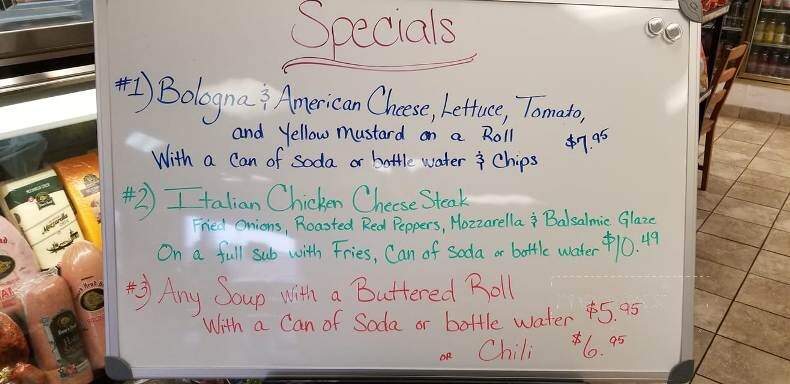 Specials
#1) Bologna & American Cheese, Lettuce, Tomato,
and Yellow Mustard on a Roll $7.95
With a Can of Soda or bottle water & Chips
#2) Italian Chicken Cheese Steak
Fried Onions, Roasted Red Peppers, Mozzarella & Balsalmic Glaze
On a full sub with Fries, Can of Soda or bottle water $10.49
#3) Any Soup with a Buttered Roll
With a Can of Soda or bottle water $5.95
OR Chili $6.95